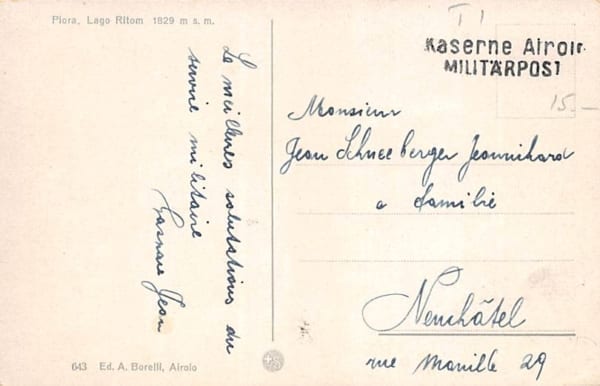 Piora, Lago Ritom 1829 m s. m.
Le meilleures salutations du
servire militaire
Jean
643 Ed. A. Borelli, Airolo
T I
Kaserne Airolo
MILITÄRPOST
15.—
Monsieur
Jean Schneeberger Jeannihard
e familie
Neuchâtel
rue Maville 29